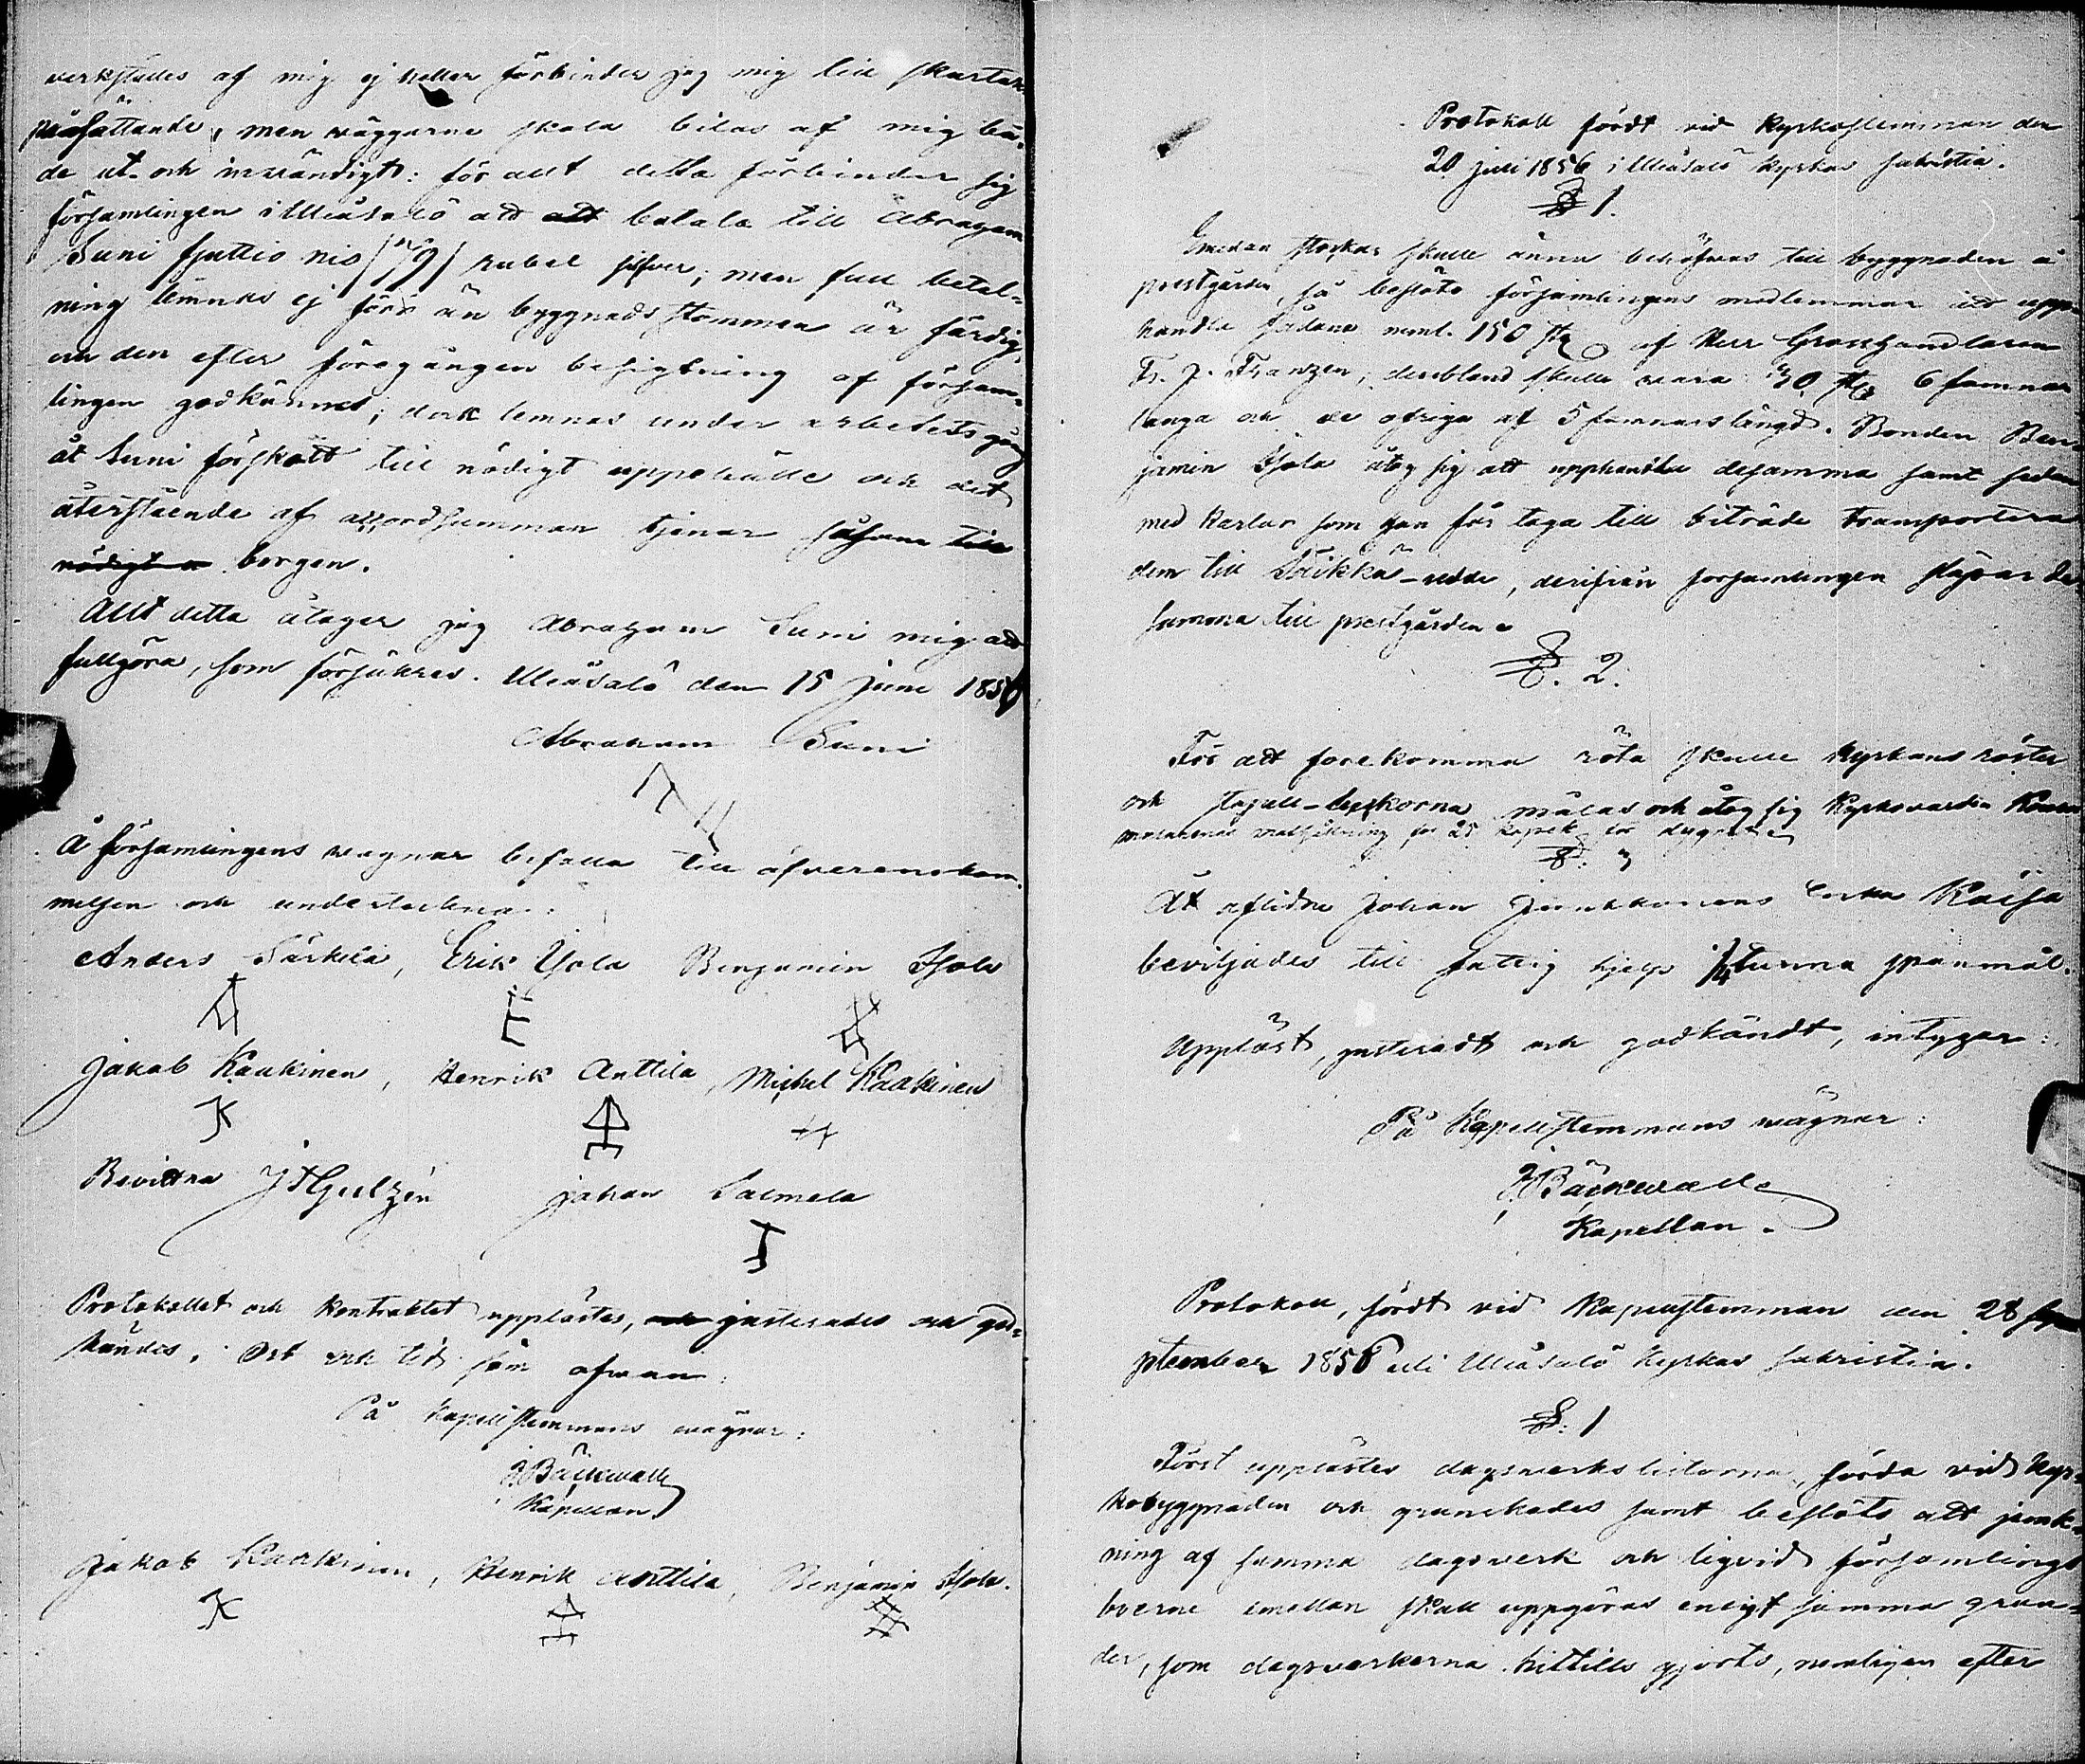 verkstades af mig ej heller förbinder jag mig till skorstens
påsättande, men väggarne skola bilas af mig bå-
de ut- och invändigt: för allt detta förbinder sig
församlingen i Uleåsalö att att betala till Abraham
Suni sjuttio nio (79) rubel silfver; men full betal-
ning lemnas ej förr än byggnads stommen är färdig,
om den efter föregången besigtning af försam-
lingen godkännes; dock lemnas under arbetets gång
åt Suni förskott till nödigt uppehälle och det
återstående af accordsumman tjenar såsom till
nödigt a borgen.
Allt detta åtager jag Abraham Suni mig att
fullgöra, som försäkras. Uleåsalö den 15 Juni 1856
Abraham Suni
Å församlingens wägnar bifalla till öfverenskom-
melsen och underteckna:
Anders Särkelä, Erik Ysola Benjamin Isola
Jakob Kaakinen, Henrik Anttila, Michel Kaakinen
Bevittna J Hjultzén Johan Salmela
Protokollet och Kontraktet upplästes, och justerades och god-
kändes. Ort och tid som ofvan.
På Kapellstemmans wägnar:
J. Bäckwall
Kapellan.
Jakob Kaakinen, Henrik Anttila, Benjamin Isola.
Protokoll fördt vid Kyrkostemman den
20 juli 1856 i Uleåsalö kyrkas sakristia.
§ 1.
Emedan stockar skulle ännu behöfvas till byggnaden å
prestgården, så beslöto församlingens medlemmar att upp-
handla sådana neml. 150 st. af Herr Grosshandlaren
Fr. J. Franzen; deribland skulle vara 30 st. 6 famnar
långa och de öfriga af 5 famnars längd. Bonden Ben-
jamin Isola åtog sig att upphandla desamma samt sedan
med karlar som han får taga till biträde transportera
dem till Säikkä-udde, derifrån församlingen släpar de
samma till prestgården.
§. 2.
För att förekomma röta skulle kyrkans röster
och stapell-luckorna målas och åtog sig Kyrkovärden
målarenes mathållning för 25 kopek för dygnet
§. 3
Åt aflidne Johan Junkkonens enka Kaisa
beviljades till fattig hjelp 1/4 tunna spanmål.
Uppläst, justeradt och godkändt, intygar:
På Kapellstemmans wägnar:
J. Bäckwall
Kapellan.
Protokoll, fördt vid Kapellstemman den 28 se-
ptember 1856 uti Uleåsalö Kyrkas sakristia.
§. 1
Först upplästes dagsverks listorna, förda vid Kyr-
kobyggnaden och granskades samt beslöts att jemk-
ning af samma dagsverk och liqvid församlings
boerne emellan skall uppgöras enligt samma grun-
der, som dagsverkerna hittills gjorts, nemligen efter